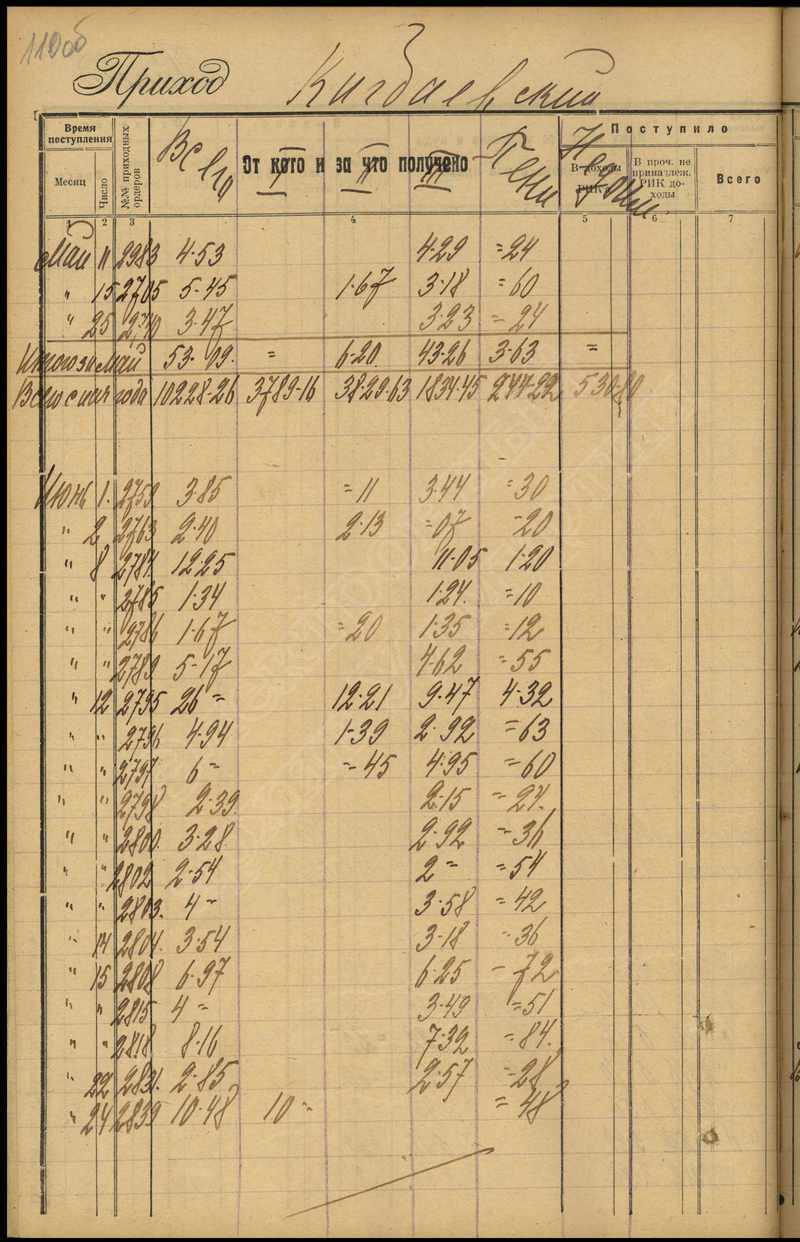 119об
Приход Кагдаевский
Время поступления
Месяц
Число
№№ приходных ордеров
Всего
От кого и за что получено
I II III
Пени
Недоим.
Поступило
В доходы РИК
В проч. не принадлеж. РИК доходы
Всего
1 2 3 4 5 6 7
Май 11 2983 4-53 4-29 =24
" 15 2705 5-45 1-67 3-18 =60
" 25 2710 3-47 3-23 =24
Итого за май 53-09 = 6-20 43-26 3-63 =
Всего с нач года 10228-26 3789-16 3829-63 1834-45 244-22 530-80
Июнь 1. 2759 3-85 =11 3-44 =30
" 2 2763 2-40 2-13 =07 -20
" 8 2784 12 25 11-05 1-20
" " 2785 1-34 1-24 =10
" " 2786 1-67 =20 1-35 =12
" " 2789 5-17 4-62 =55
" 12 2795 26= 12-21 9-47 4-32
" " 2796 4-94 1-39 2-92 =63
" " 2797 6= =45 4-95 =60
" " 2798 2-39 2-15 =24.
" " 2800. 3-28 2-92 =36
" " 2802 2-54 2= =54
" " 2803. 4- 3-58 =42
" 14 2804. 3-54 3-18 =36
" 15 2808 6-97 6-25 -72
" " 2815 4= 3-49 =51
" " 2818 8-16 7-32 =84.
" 22 2831. 2-85 2-57 -28
" 24 2839 10-48 10= =48